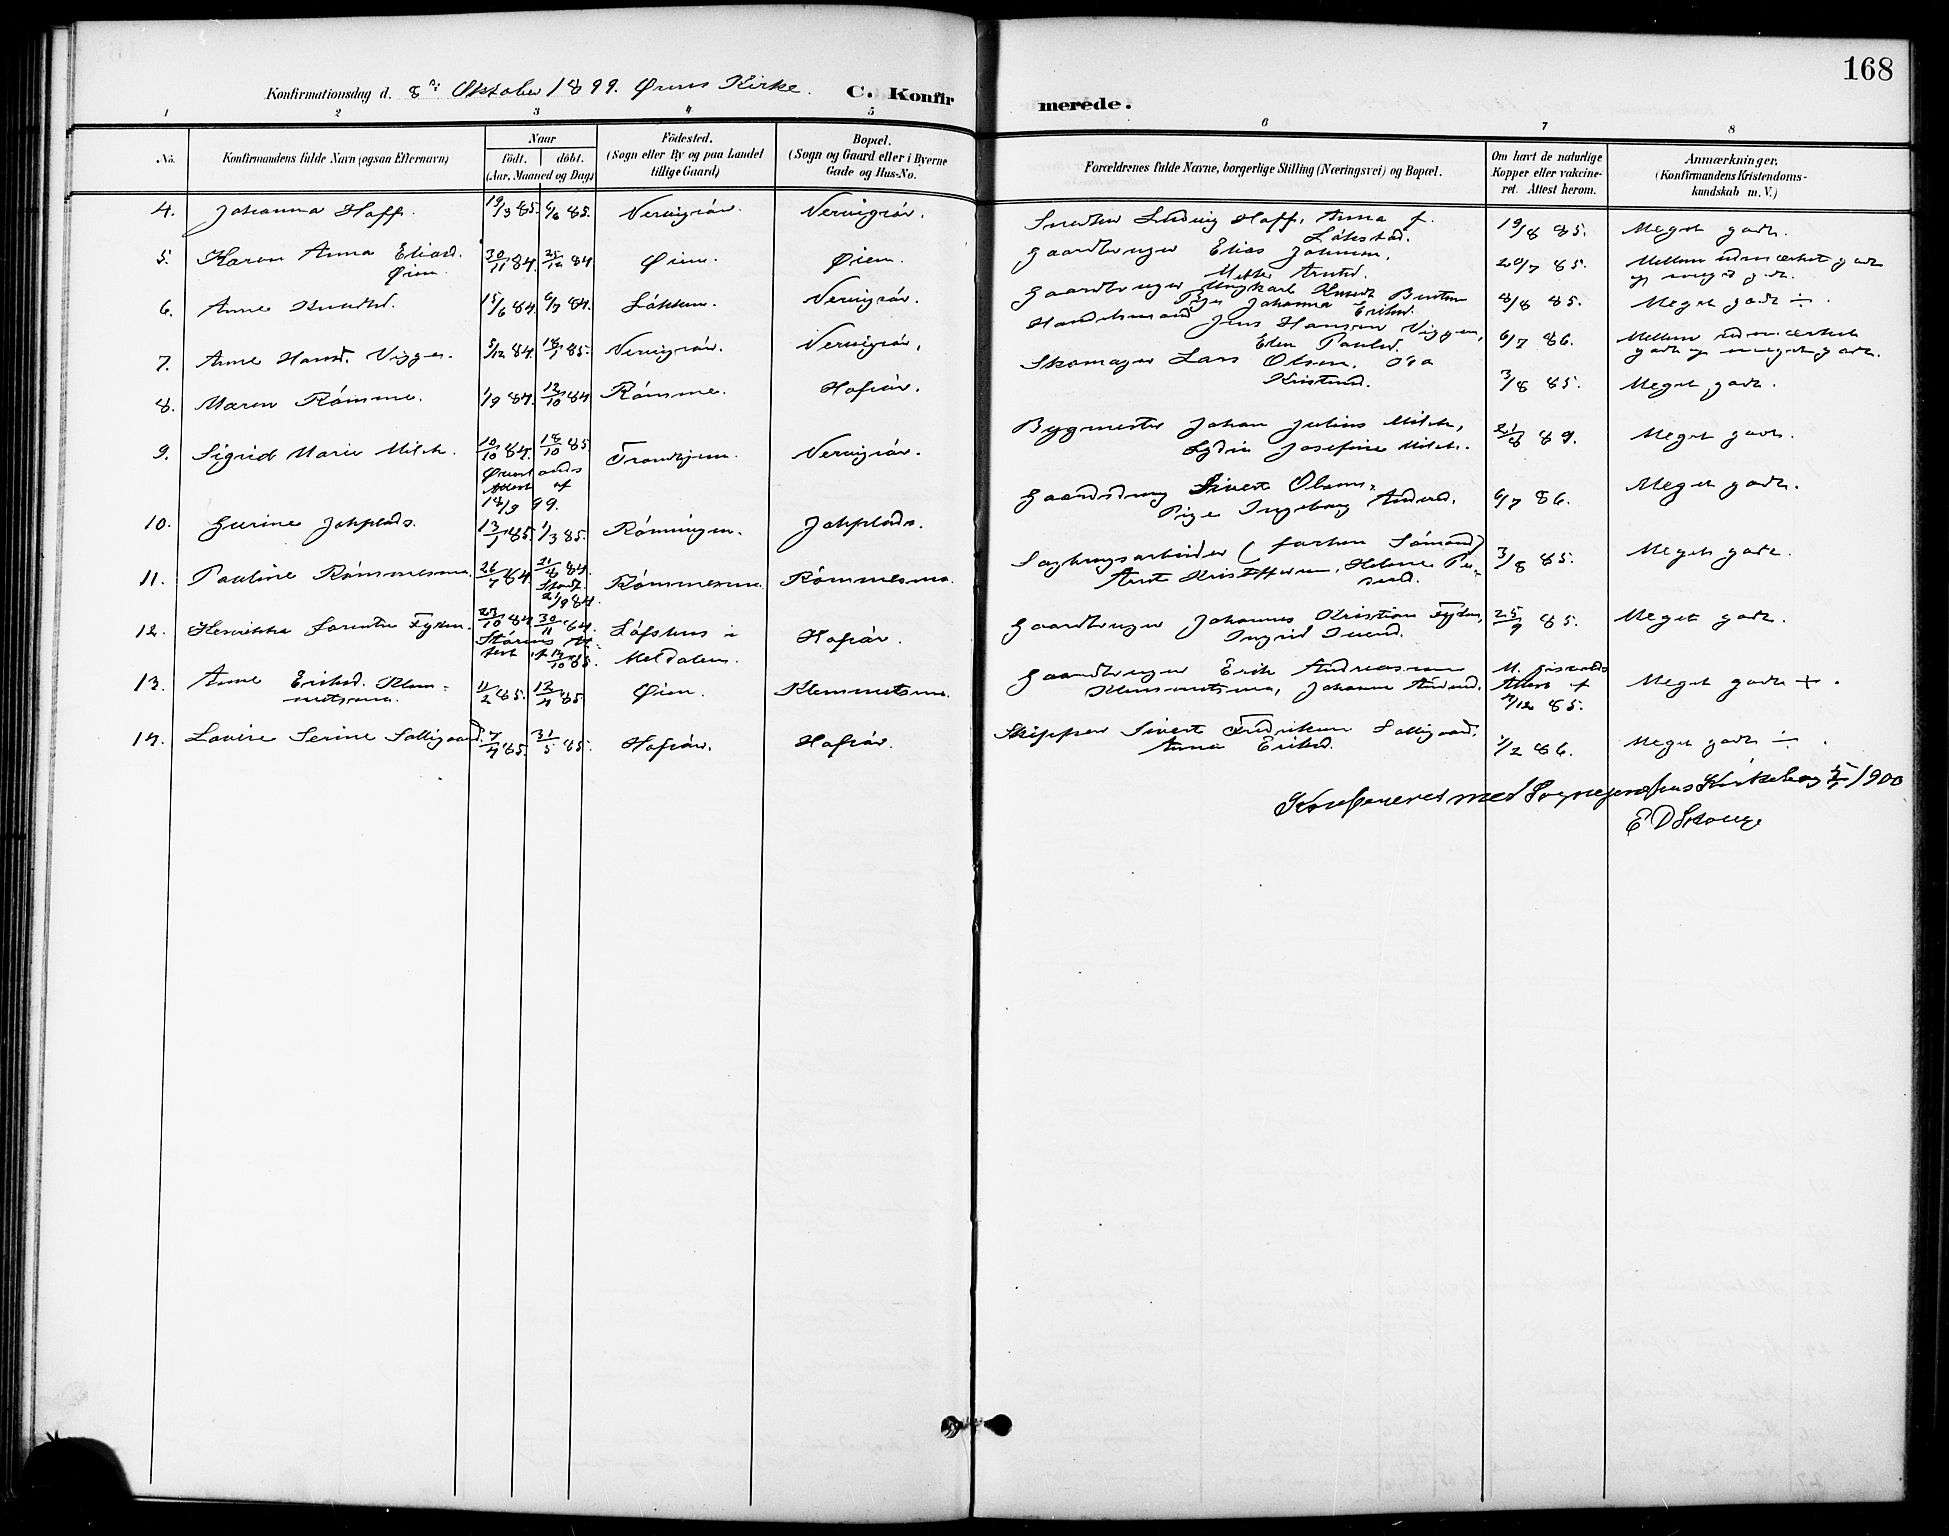 168
Konfirmationsdag d. 8de Oktober 1899. Ørens Kirke. C. Konfirmerede.
1 2 3 4 5 6 7 8
No. Konfirmandens fulde Navn (ogsaa Efternavn) Naar födt. döbt. (Aar, Maaned og Dag) Födested. (Sogn eller By og paa Landet tillige Gaard) Bopæl. (Sogn og Gaard eller i Byerne Gade og Hus-No. Forældrenes fulde Navne, borgerlige Stilling (Næringsvei) og Bopæl. Om havt de naturlige Kopper eller vakcineret. Attest herom. Anmærkninger. (Konfirmandens Kristendomskundskab m. V.)
4. Johanna Hoff. 19/3 85. 6/6 85. Nervigsør. Nervigsør. Snedker Ludvig Hoff, Anna f. Løkstad. 19/8 85. Meget godt.
5. Karen Anna Eliasd. Øien. 30/11 84. 25/12 84 Øien. Øien. Gaardbruger Elias Johnsen, Mette Arntsd. 20/7 85. Mellem udmærket godt og meget godt.
6. Anne Knudsd. 15/6 84. 6/7 84. Løkken. Nervigsør. Gaardbruger Ungkarl Knudt Bentsen Pige Johanna Eriksd. 8/8 85. Meget godt ÷.
7. Anne Hansd. Viggen. 5/12 84 18/1 85. Nervigsør. Nervigsør. Handelsmand Jens Hansen Viggen, Elen Paulsd. 6/7 86. Mellem udmærket godt og meget godt.
8. Maren Rømme. 1/9 84. 12/10 84 Rømme. Hofsør. Skomager Lars Olsen, Kristensd. 3/8 85. Meget godt.
9. Sigrid Marie Milch. 10/10 84. 18/10 85. Attest af 18/9 99. Trondhjem. Nervigsør. Bygmester Johan Julius Milch, Lydia Josefine Milch. 21/8 89. Meget godt.
10. Gurine Johplads. 13/1 85. 1/3 85. Rønningen. Johplads. Gaardsdreng Sivert Olsen, Pige Ingeborg Andersd. 6/7 86. Meget godt.
11. Pauline Rømmesmo. 26/7 84. 31/8 84. 21/9 84. Rømmesmo. Rømmesmo. Sagbrugsarbeider (forhen Sømand) Arnt Kristoffersen, Helene Pedersd. 3/8 85. Meget godt.
12. Henrikka Sorentse Fyken. 27/10 84 30/11 84. Størens Attest af 13/10 85. Løfshus i Meldalen. Hofsør. Gaardbruger Johannes Kristian Fyken, Ingrid Iversd. 25/9 85. Meget godt.
13. Anne Eriksd. Klemmetsmo. 11/2 85. 12/4 85. Øien. Klemmetsmo. Gaardbruger Erik Andreassen Klemmetsmo, Johanne Andersd. Attest af 7/12 85. Meget godt +.
14. Lovise Serine Solligaard. 7/4 85. 31/5 85. Hofsør. Hofsør. Skipper Sivert Fredriksen Solligaard, Anna Eriksd. 1/2 86. Meget godt ÷.
Konfereret med Sogneprestens Kirkebog 5/5 1900
E D Skouge